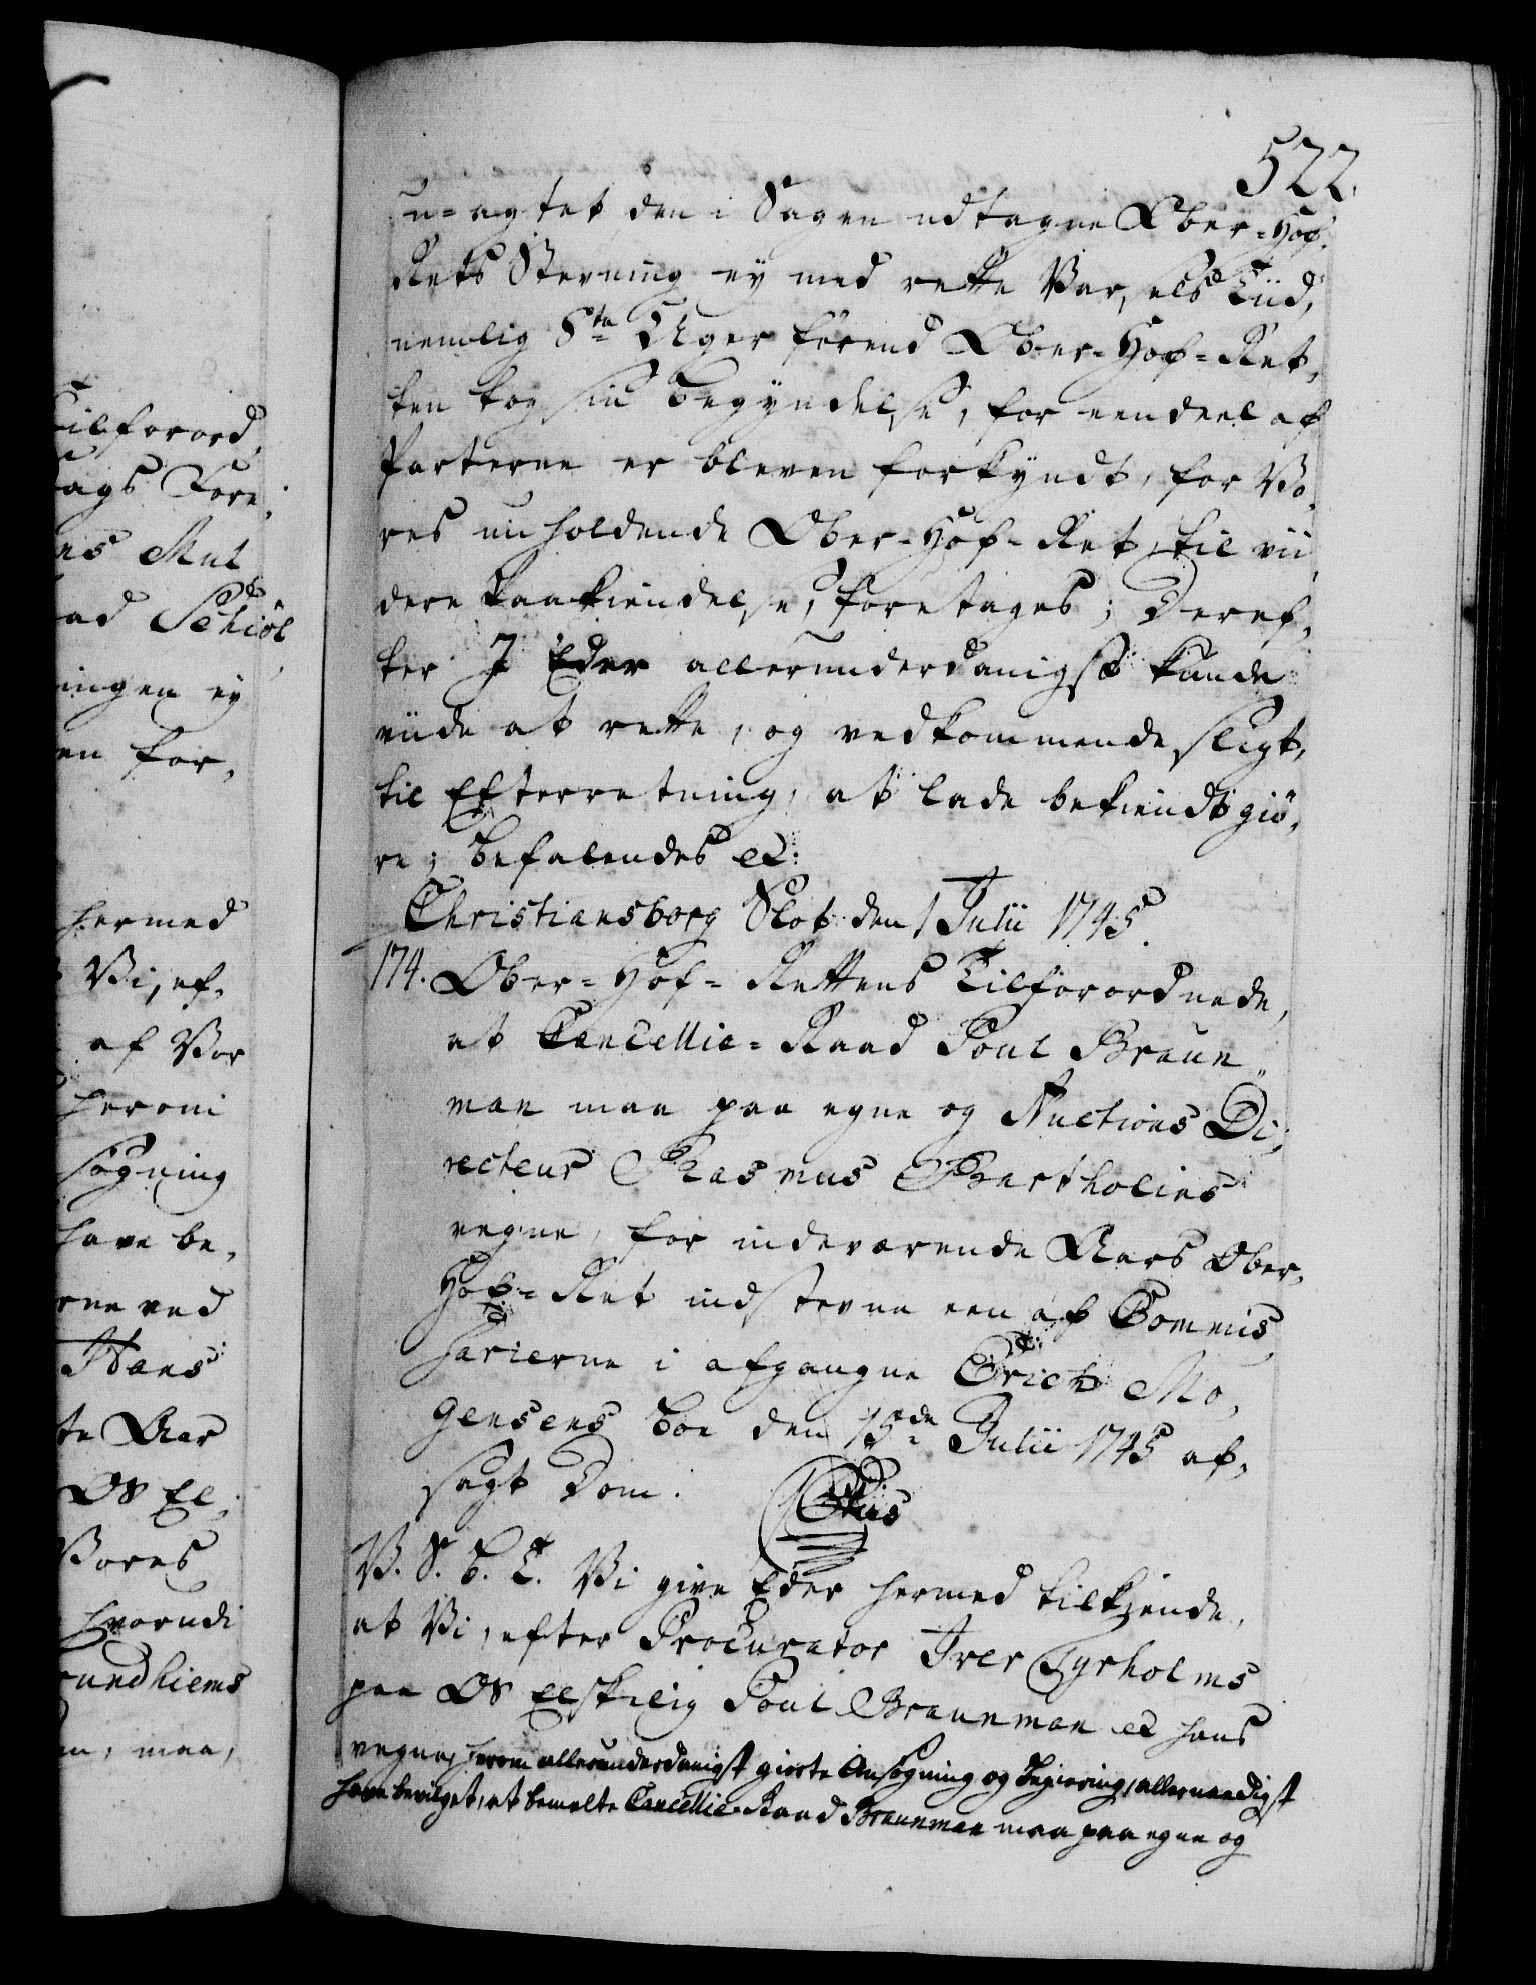 522.
u-agtet den i Sagen udtagne Ober-Hof-
Rets Stevning ey med rette Varsels Tiid,
nemlig 8te Uger førend Ober-Hof-Ret-
ten tog sin Begyndelse, for eendeel af
Parterne er bleven forkyndt, for Vo-
res nu holdende Ober-Hof-Ret, til vii-
dere Paakiendelse, foretages; Deref-
ter I Eder allerunderdanigst kunde
viide at rette, og vedkommende sligt,
til Efterretning, at lade bekiendtgiø-
re; Befalendes etc:
Christiansborg Slot den 1 Julii 1745.
174. Ober-Hof-Rettens Tilforordnede,
at Cancellie-Raad Poul Braun-
man maa paa egne og Auctions Di-
recteur Rasmus Bartholins
vegne, for indeværende Aars Ober-
Hof-Ret indstevne een af Commis-
sarierne i afgangne Erich Mo-
gensens Boe den 15de Julii 1745 af-
sagt Dom.
C 6tus
V. S. B. T. Vi give Eder hermed tilkiende,
at Vi, efter Procurator Iver Gyrholms
paa Os Elskelig Poul Braunman etc hans
vegne, herom allerunderdanigst giorte Ansøgning og Begiering, allernaadigst
have bevilget, at bemelte Cancellie-Raad Braunman maa paa egne og
Tilforord-
ags Fore-
ns Mul
ad Schiøl
ingen ey
en for-
hermed
Vi, ef-
af Vor
herom
søgning
have be-
rne ved
Hans
te Aar
Os El-
Vores
hvorudi
rundhiems
en, maa,